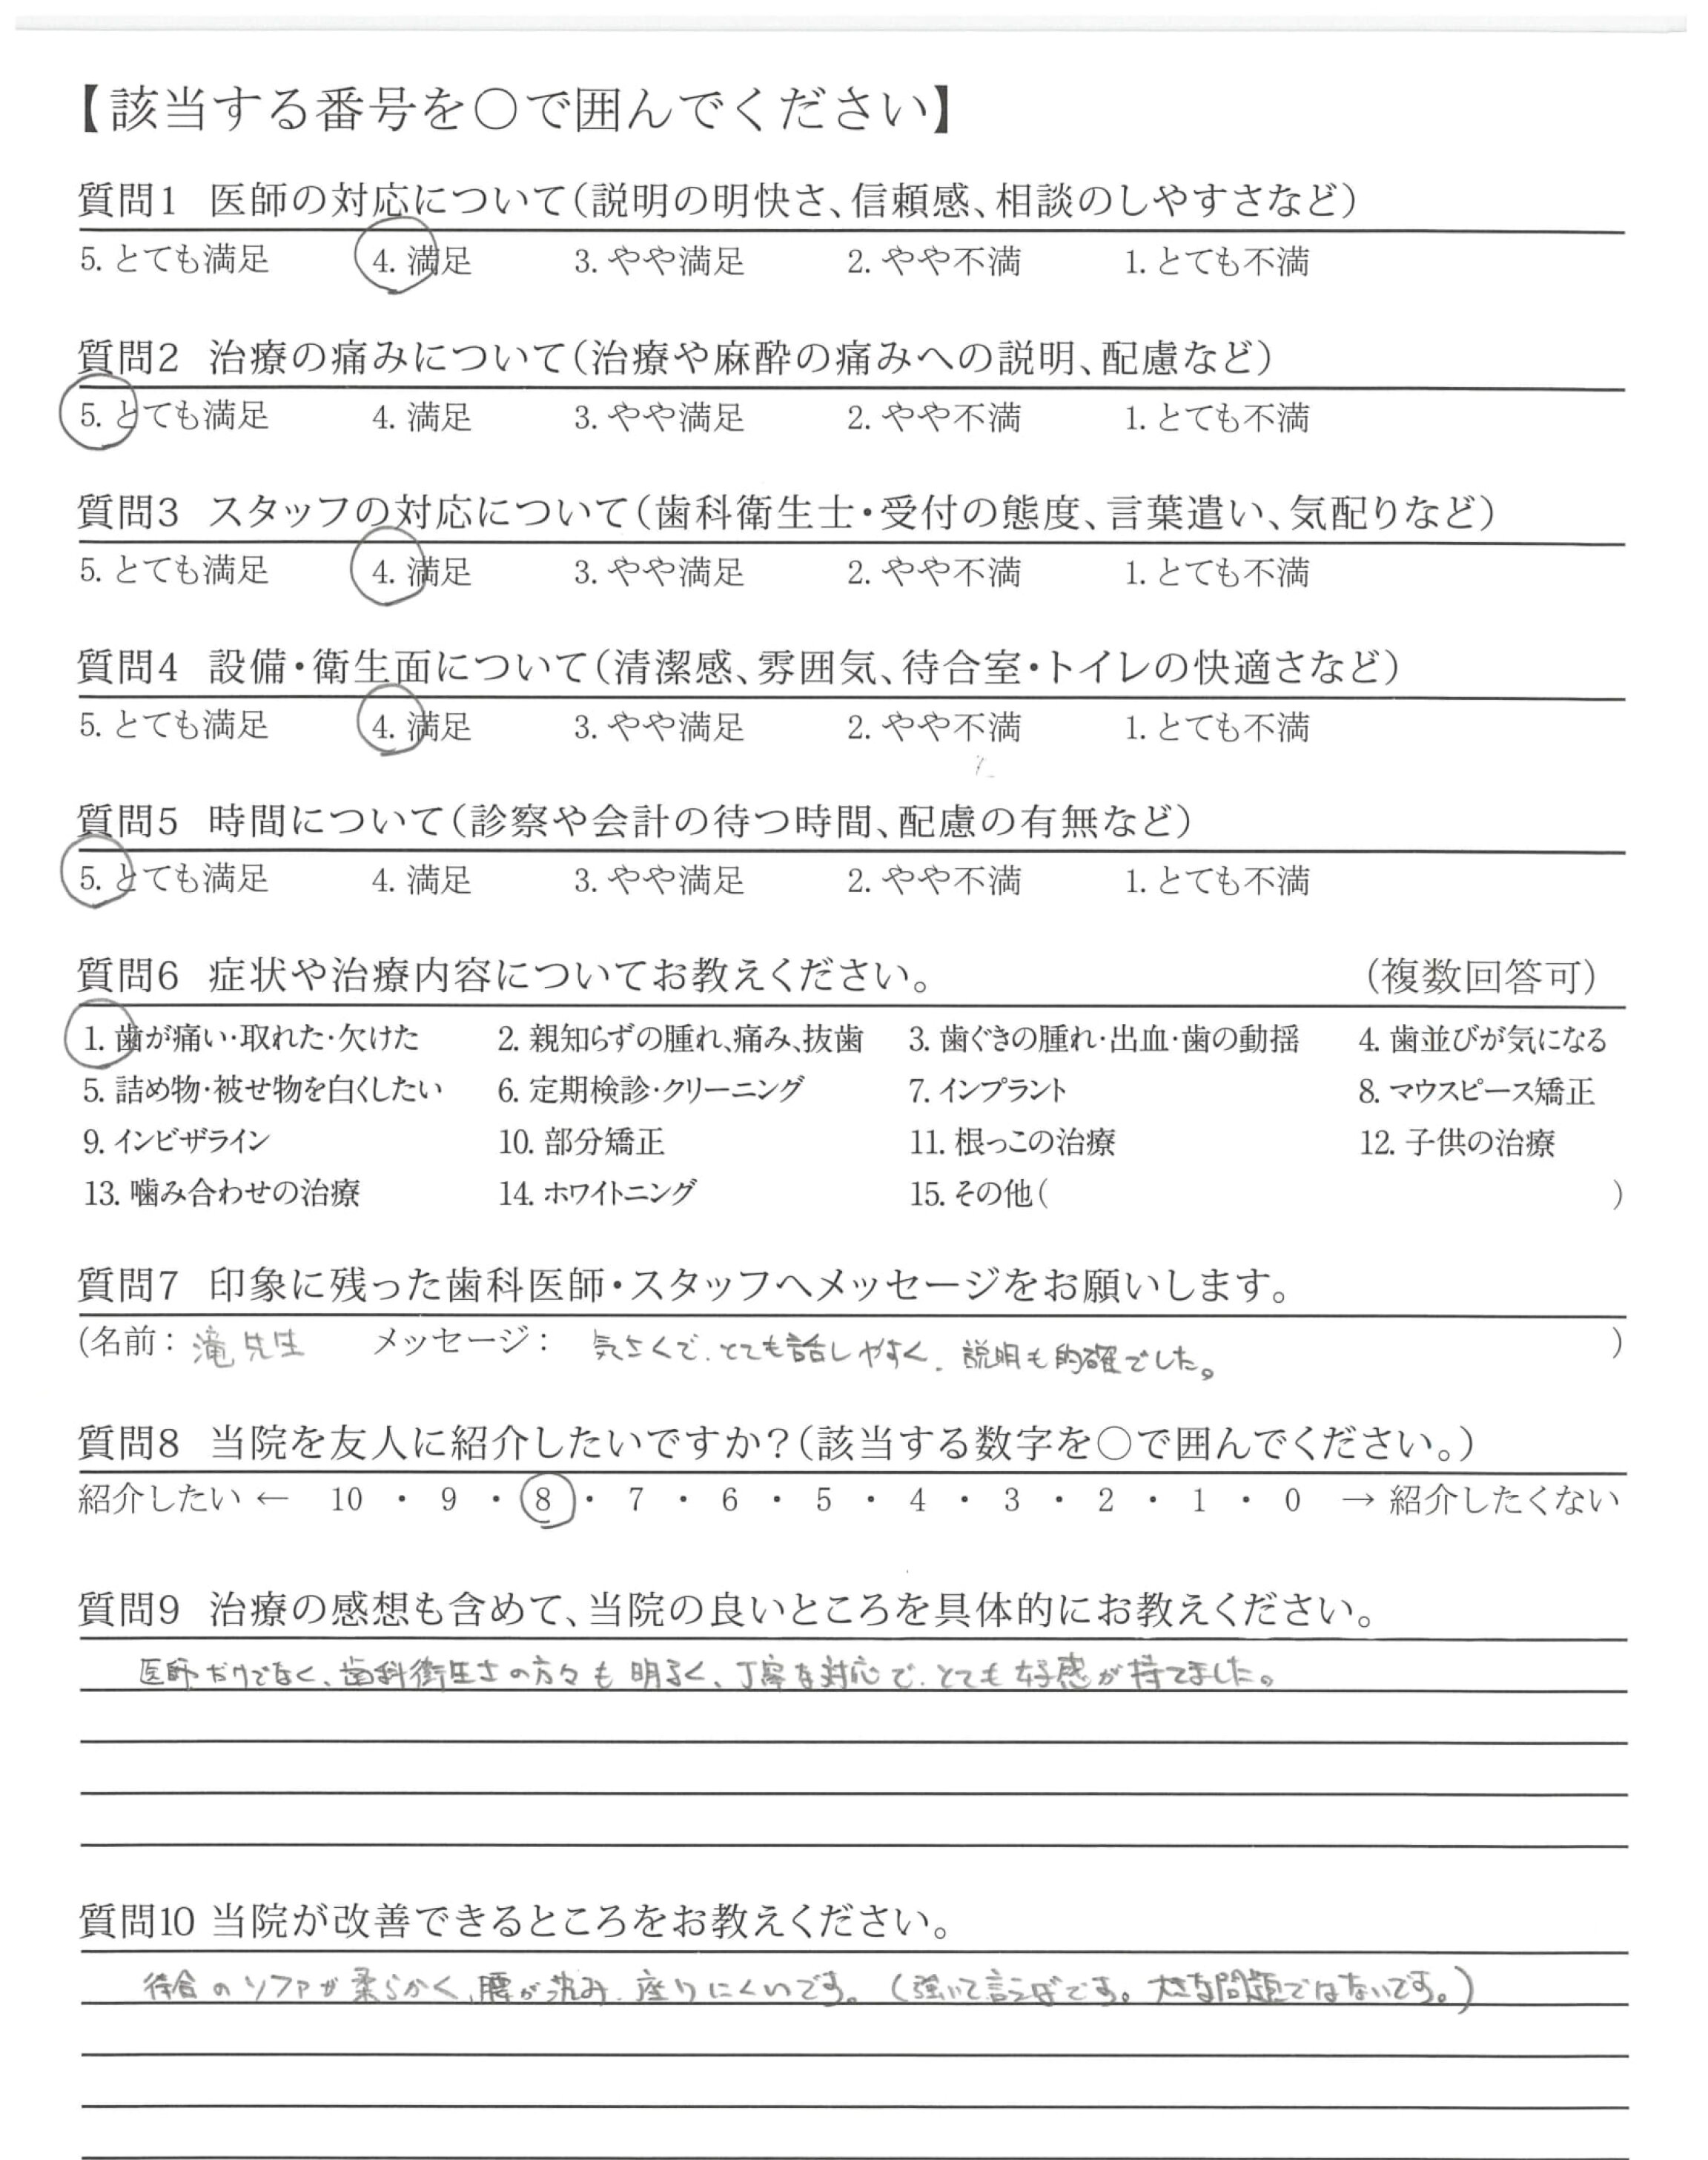 【該当する番号を〇で囲んでください】
質問1 医師の対応について(説明の明快さ、信頼感、相談のしやすさなど)
5. とても満足 4. 満足 3. やや満足 2. やや不満 1. とても不満
質問2 治療の痛みについて(治療や麻酔の痛みへの説明、配慮など)
5. とても満足 4. 満足 3. やや満足 2. やや不満 1. とても不満
質問3 スタッフの対応について(歯科衛生士・受付の態度、言葉遣い、気配りなど)
5. とても満足 4. 満足 3. やや満足 2. やや不満 1. とても不満
質問4 設備・衛生面について(清潔感、雰囲気、待合室・トイレの快適さなど)
5. とても満足 4. 満足 3. やや満足 2. やや不満 1. とても不満
質問5 時間について(診察や会計の待つ時間、配慮の有無など)
5. とても満足 4. 満足 3. やや満足 2. やや不満 1. とても不満
質問6 症状や治療内容についてお教えください。 (複数回答可)
1. 歯が痛い・取れた・欠けた 2. 親知らずの腫れ、痛み、抜歯 3. 歯ぐきの腫れ・出血・歯の動揺 4. 歯並びが気になる
5. 詰め物・被せ物を白くしたい 6. 定期検診・クリーニング 7. インプラント 8. マウスピース矯正
9. インビザライン 10. 部分矯正 11. 根っこの治療 12. 子供の治療
13. 噛み合わせの治療 14. ホワイトニング 15. その他( )
質問7 印象に残った歯科医師・スタッフへメッセージをお願いします。
(名前: 滝先生 メッセージ: 気さくで、とても話しやすく、説明も的確でした。 )
質問8 当院を友人に紹介したいですか?(該当する数字を〇で囲んでください。)
紹介したい ← 10 ・ 9 ・ 8 ・ 7 ・ 6 ・ 5 ・ 4 ・ 3 ・ 2 ・ 1 ・ 0 → 紹介したくない
質問9 治療の感想も含めて、当院の良いところを具体的にお教えください。
医師だけでなく、歯科衛生さの方々も明るく、丁寧な対応で、とても好感が持てました。
質問10 当院が改善できるところをお教えください。
待合のソファが柔らかく、腰が沈み、座りにくいです。(強いて言えばです。大きな問題ではないです。)